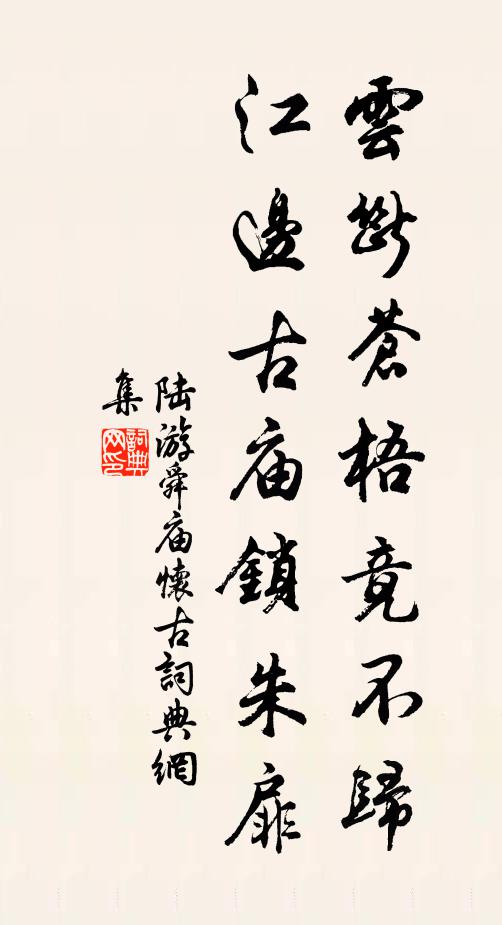 雲斷蒼梧竟不歸
江邊古庙鎖朱扉
陆游舜庙懷古詞典網
集
詞典网印